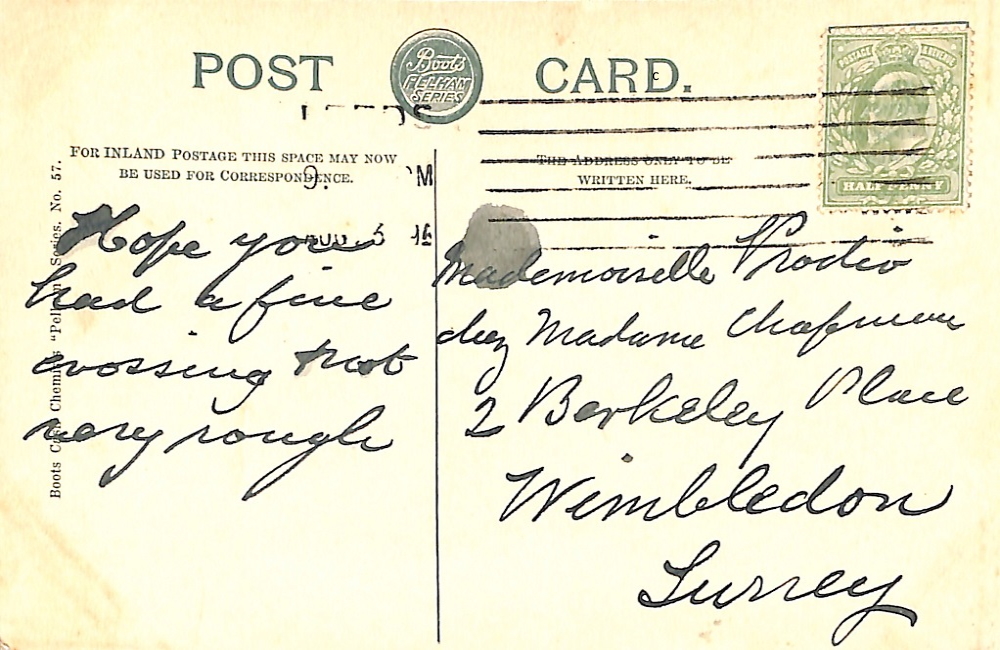 POST CARD.
Boots
PELHAM
SERIES
FOR INLAND POSTAGE THIS SPACE MAY NOW
BE USED FOR CORRESPONDENCE.
THE ADDRESS ONLY TO BE
WRITTEN HERE.
POSTAGE & REVENUE
HALFPENNY
Boots Cash Chemists "Pelham" Series. No. 57.
LEEDS
Hope you
had a fine
crossing & not
very rough
Mademoiselle
chez Madame Chapman
2 Berkeley Place
Wimbledon
Surrey